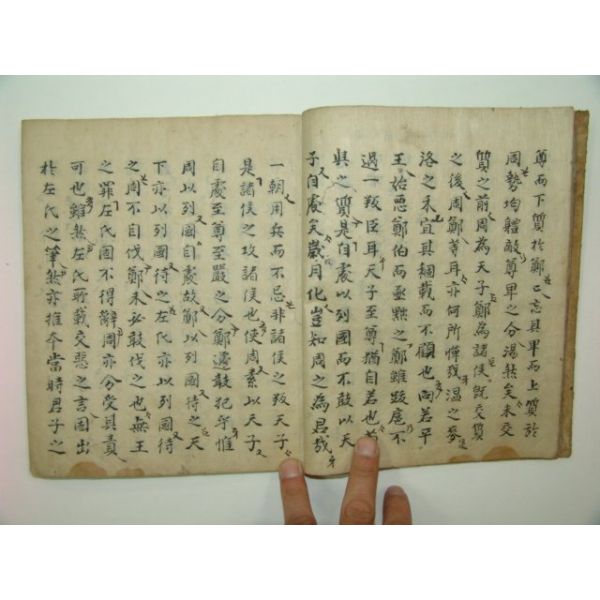 尊而下質於鄭〻忘其卑而上質於
周勢均軆敵尊卑之分蕩然矣未交
質之前周為天子鄭為諸侯既交質
之後周鄭等耳亦何所憚哉溫之麥
洛之禾宜其稛載而不顧也向若平
王始惡鄭伯而亟黜之鄭雖跋扈不
過一叛臣耳天子至尊猶自若也若
與之質是自處以列國而不敢以天
子自處矣歲月化豈知周之為君哉
一朝用兵而不忌非諸侯之叛天子
是諸侯之攻諸侯也使周素以天子
自處至尊至嚴之分鄭遽敢犯乎惟
周以列國自處故鄭以列國待之天
下亦以列國待之左氏亦以列國待
之周不自伐鄭未必敢伐之也無王
之罪左氏固不得辭周亦分受其責
可也雖然左氏所載交惡之言固出
於左氏之筆然亦推本當時君子之